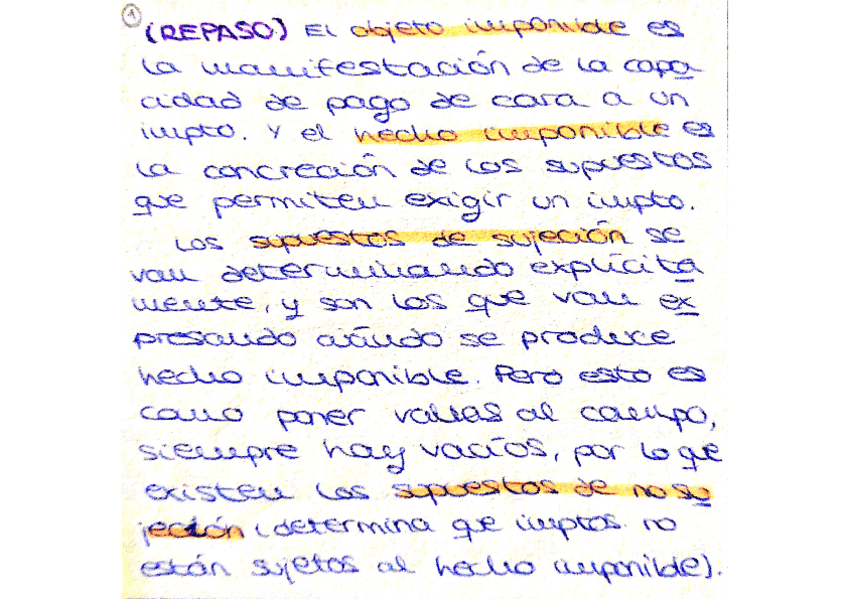 1
(REPASO) El objeto imponible es
la manifestación de la capa
cidad de pago de cara a un
impto. Y el hecho imponible es
la concreción de los supuestos
que permiten exigir un impto.
Los supuestos de sujeción se
van determinando explícita
mente, y son los que van ex
presando cuándo se produce
hecho imponible. Pero esto es
como poner vallas al campo,
siempre hay vacíos, por lo que
existen los supuestos de no su
jeción (determina que imptos no
están sujetos al hecho imponible).